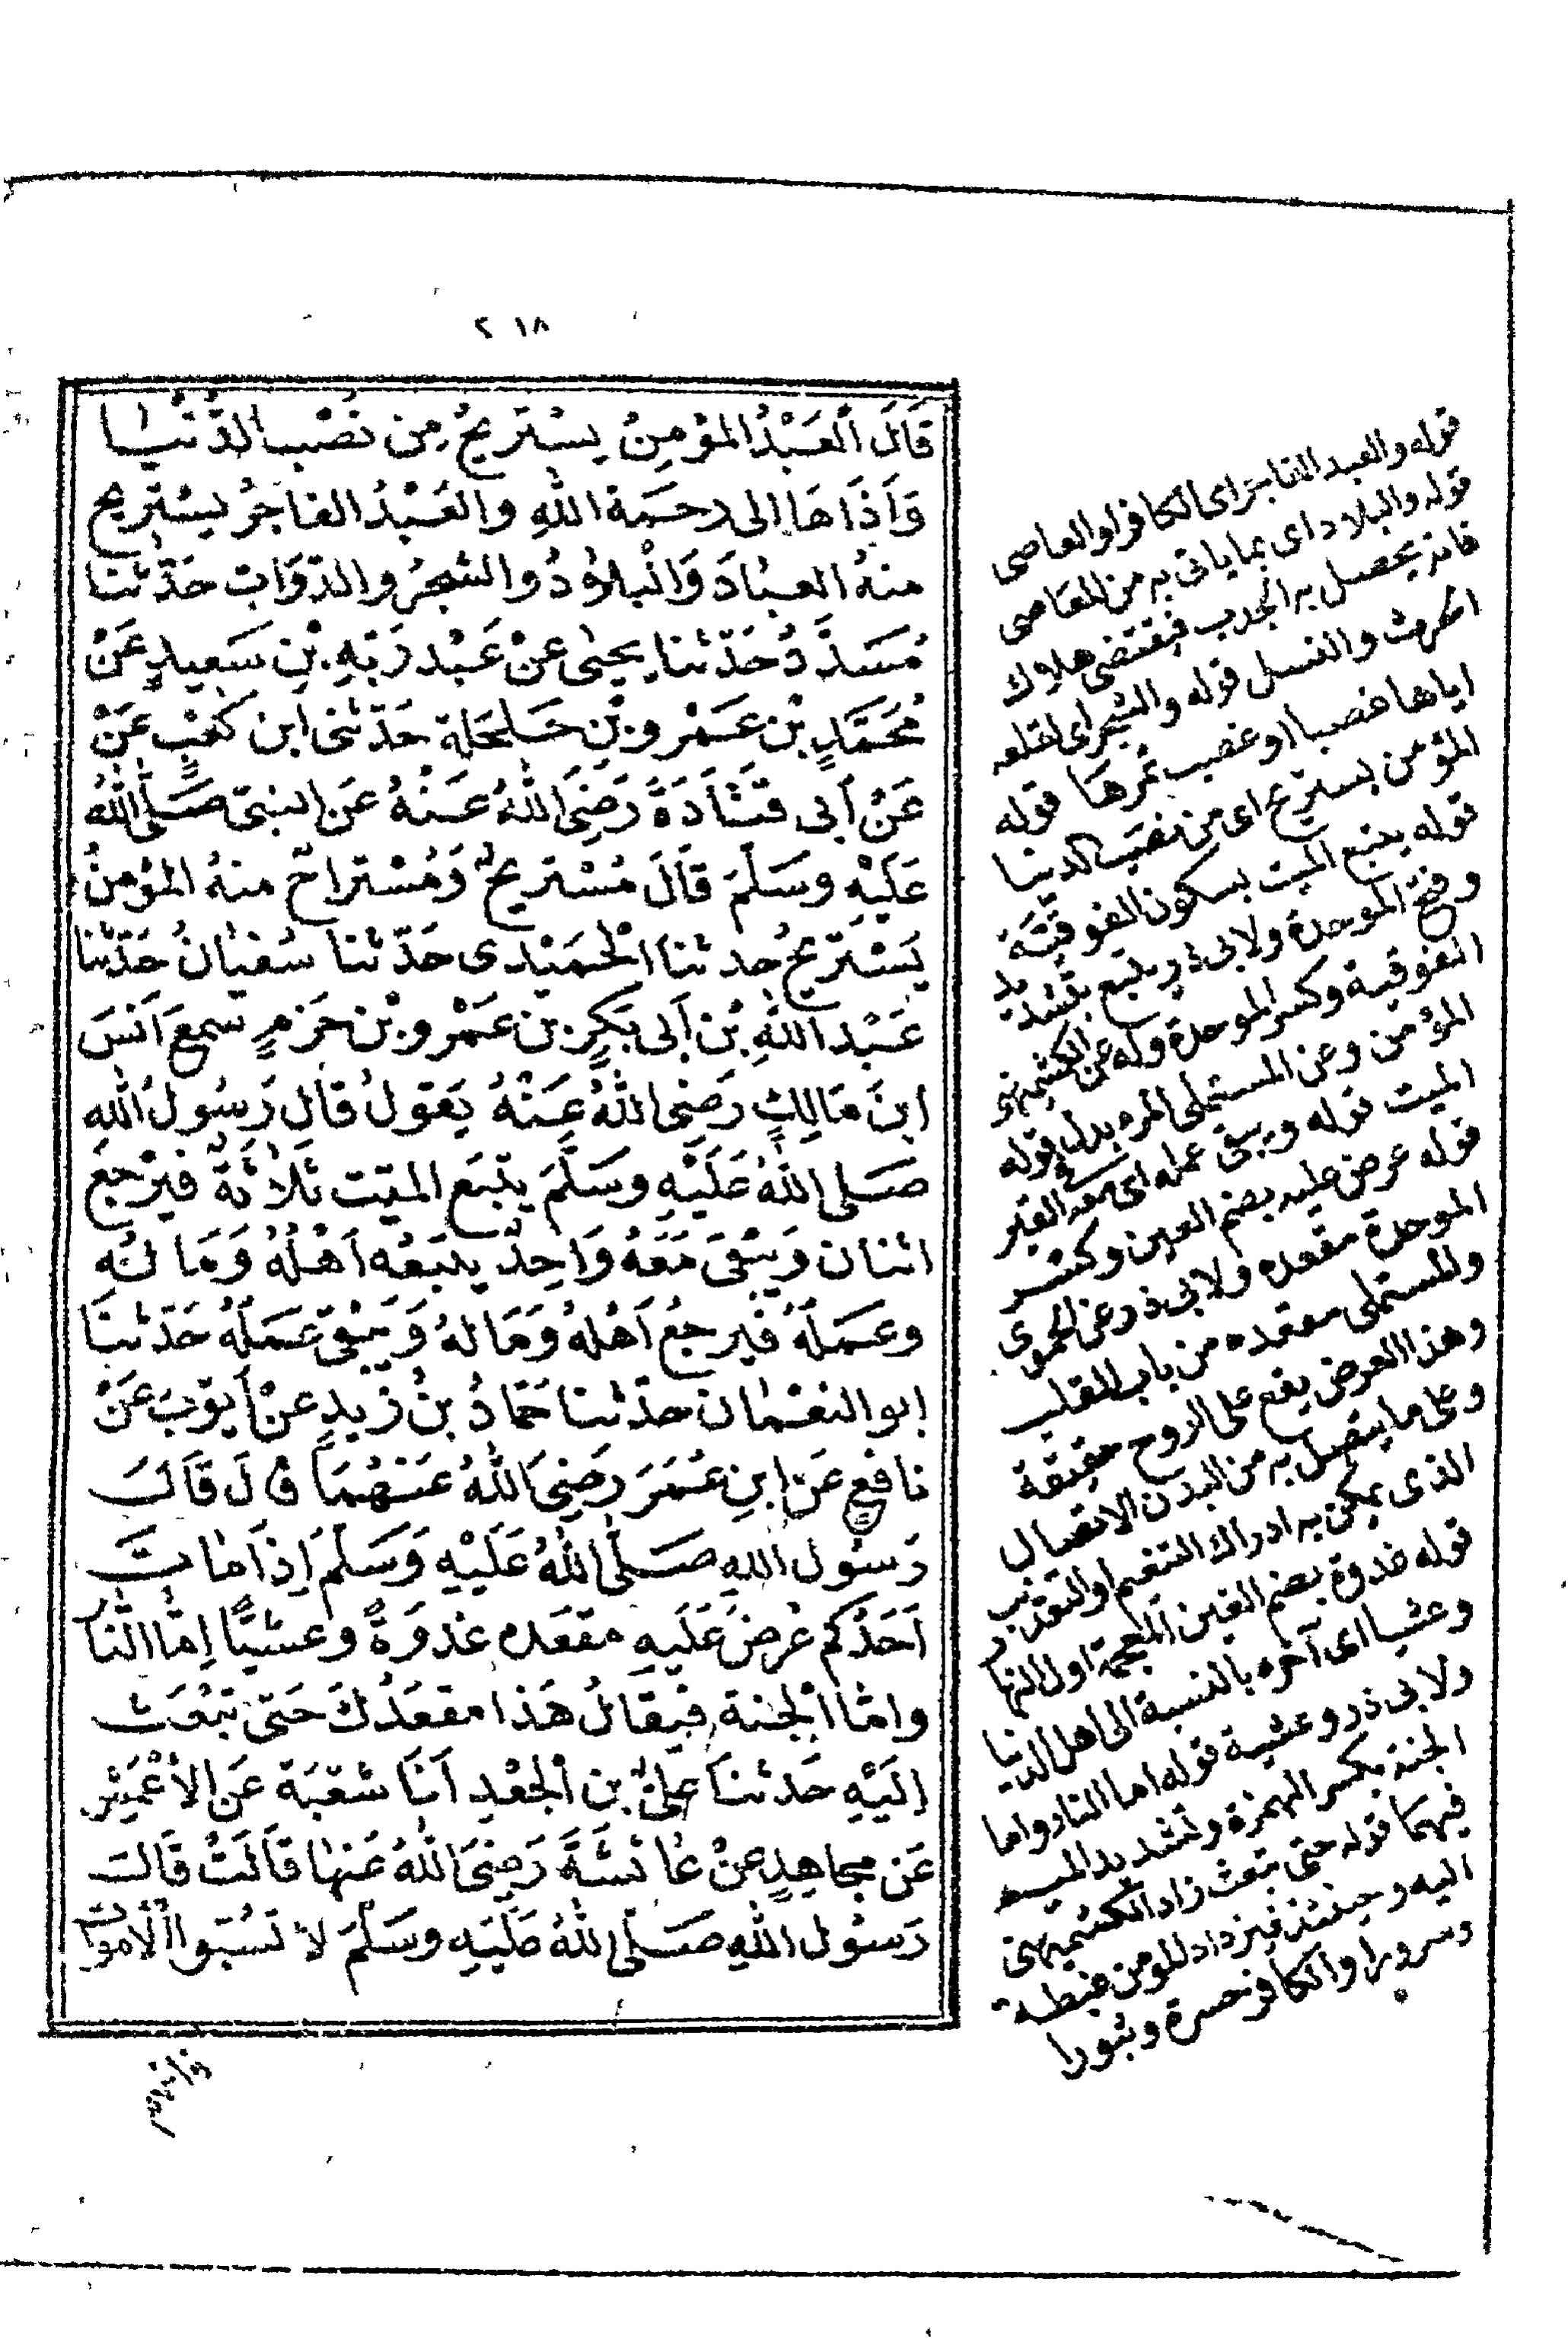 ٢١٨
قَالَ الْعَبْدُ المؤمِنُ يسْتَرِيحُ مِن نَصَبِ الدُّنْيَا
وَأَذَاهَا إلى رحمَةِ اللهِ والعَبْدُ الفاجرُ يسْتَرِيحُ
منهُ العِبَادَ وَالْبِلَادُ والشجرُ والدَّوَابّ حَدّثنا
مُسَدَّدُ حَدّثنا يحيٰى عنْ عَبْد رَبّهِ بْنِ سَعِيدٍ عَنْ
مُحَمَّدِ بْن عَمْرو بْنِ حَلحَلة حَدّثني ابن كَعْبٍ عَنْ
عَنْ أَبى قَتَادَةَ رَضِىَ اللهُ عَنْهُ عَن النبىّ صَلَّى اللهُ
عَلَيْهِ وسَلَّمَ قَالَ مُسْتَرِيحٌ وَمُسْتَراحٌ منهُ المؤمنُ
يَسْتَرِيحُ حدثنا الْحُمَيْدى حَدّثنا سُفيانُ حَدّثنا
عَبْد اللهِ بْن أَبى بَكرٍ بن عَمْرو بْن حَزمٍ سمعَ أنَسَ
ابنَ مَالِكٍ رَضِىَ اللهُ عَنْهُ يَقولُ قَالَ رَسُولُ اللهِ
صَلى اللهُ عَلَيْهِ وسَلَّمَ يتْبَع الميّت ثَلاثَةٌ فيَرْجعُ
اثنان وَيبْقىَ مَعَهُ وَاحِدٌ يتبَعُه أهْلُهُ وَمَالُه
وعَمَلَهُ فيَرجعُ أهْلهُ وَمَالهُ وَيَبْقىَ عَمَلَهُ حَدّثنَا
ابو النعْمٰان حدّثنا حَمّادُ بنُ زَيدٍ عنْ أيّوبَ عَنْ
نافعٍ عَن ابنِ عُمَرَ رَضِىَ اللهُ عَنْهُمَا قالَ قَالَ
رَسُول اللهِ صَلَّى اللهُ عَلَيْهِ وَسَلَّمَ إذَا مٰاتَ
أحَدُكم عُرضَ عَلَيهِ مقعَده غدوَةً وعشيًّا إمّا النّار
وامّا الْجنة فيقَالُ هَذا مقعَدُكَ حَتى تبْعَث
إليْهِ حَدثنا عَلىُّ بن الْجعْدِ أنَا شعْبَة عَن الأعْمَش
عَن مجاهِدٍ عنْ عٰائشَةَ رَضِىَ اللهُ عَنها قَالَتْ قَالَت
رَسُول اللهِ صَلَّى اللهُ عَلَيهِ وسَلَّمَ لا تَسُبّوا الْأموَات
قوله والعبد الفاجر اى الكافر او العاصى
قوله والبلاد اى بما ياتى به من المعاصى
فانه يحصل به الجدب فيقتضى هلاك
الحرث والنسل قوله والشجر اى لقلعه
اياها غصبا او غصب ثمرها قوله
المؤمن يستريح اى من نصب الدنيا
قوله يتبع الميت بسكون الفوقية
وفتح الموحدة ولابى ذر يتبع بتشديد
الفوقية وكسر الموحدة وله عن الكشميهنى
المؤمن وعن المستملى المرء بدل قوله
الميت قوله ويبقى عمله اى معه فى القبر
قوله عرض عليه بضم العين وكسر
الموحدة مقعده ولابى ذر عن الحموى
والمستملى مقعده من باب القلب
وهذا العرض يقع على الروح حقيقة
وعلى ما يتصل به من البدن الاتصال
الذى يمكن به ادراك التنعيم او التعذيب
قوله غدوة بضم الغين المعجمة اول النهار
وعشيا اى آخره بالنسبة الى اهل الدنيا
ولابى ذر وعشية قوله اما النار واما
الجنة بكسر الهمزة وتشديد الميم
فيهما قوله حتى تبعث زاد الكشميهنى
اليه وحينئذ فيزداد المومن غبطة
وسرورا والكافر حسرة وثبورا
فانهم